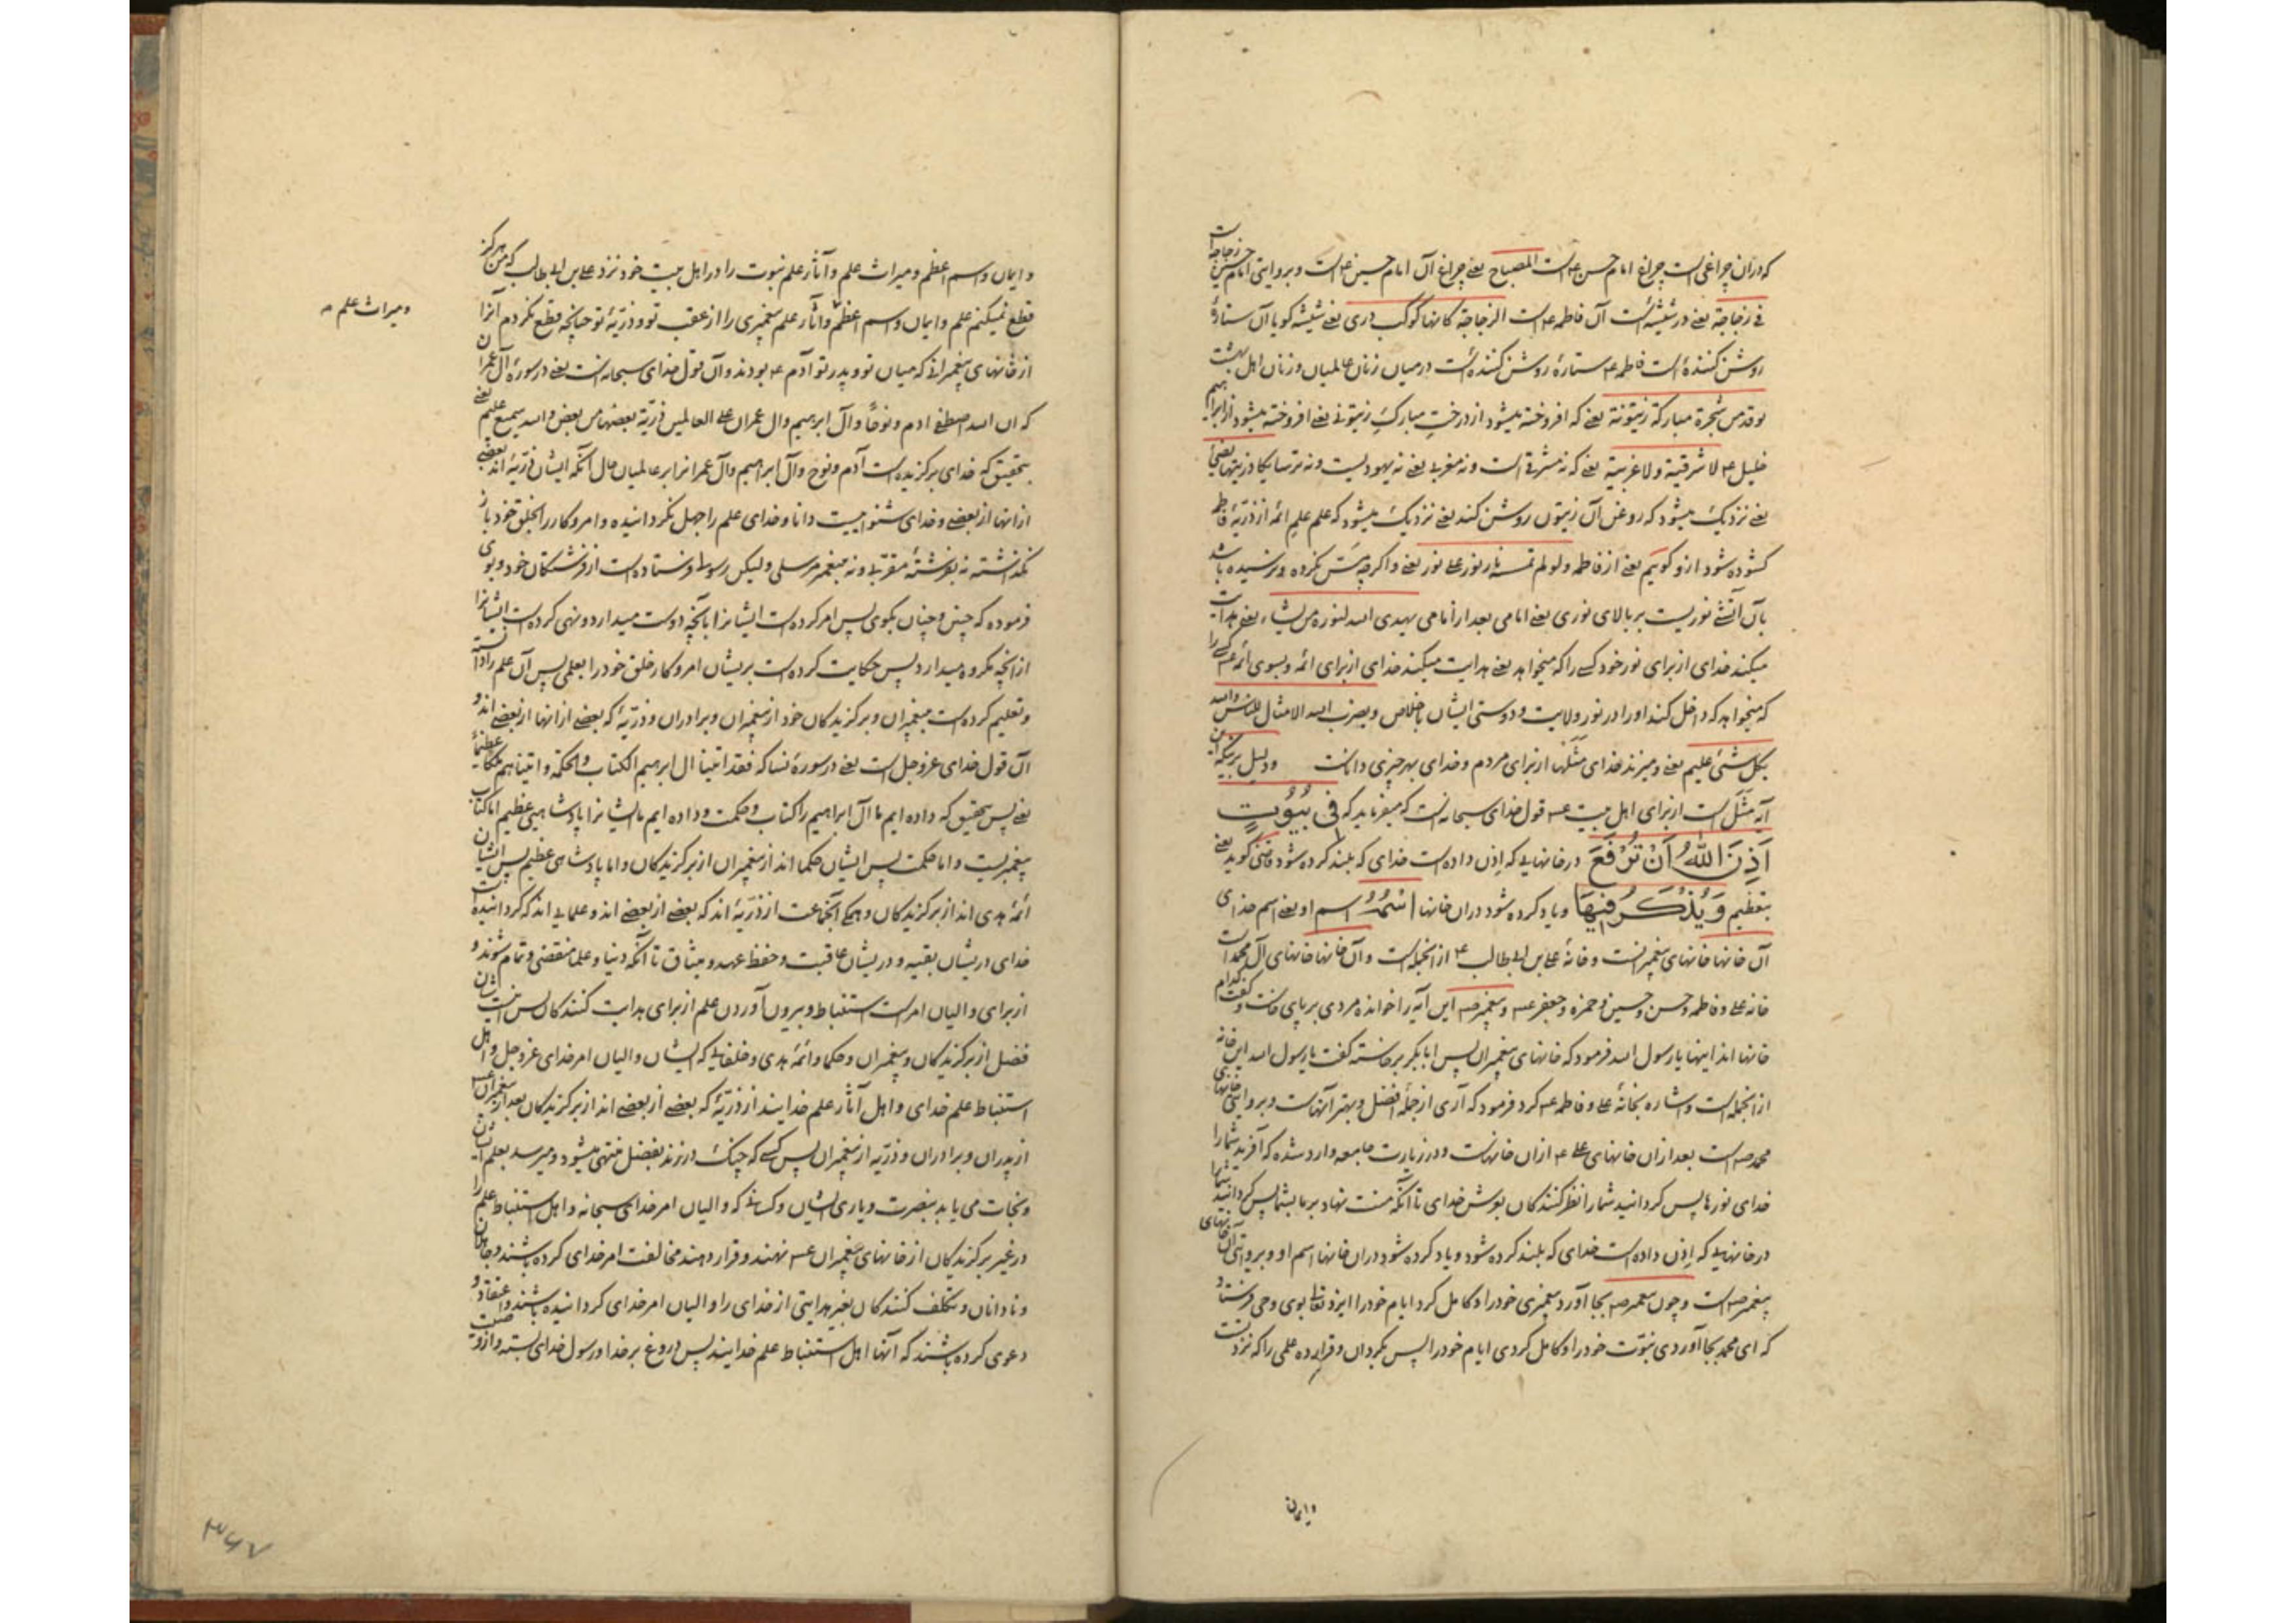 که در آن چراغی است چراغ امام حسن ع است المصباح یعنی چراغ آن امام حسین ع است و بروایتی امام حسین در زجاجه است
فی زجاجة یعنی در شیشه است آن فاطمه ع است الزجاجة کانها کوکب دری یعنی شیشه کویا آن ستارهٔ
روشن کننده است فاطمه ع ستارهٔ روشن کننده است در میان زنان عالمیان و زنان اهل بهشت
یوقد من شجرة مبارکة زیتونة یعنی که افروخته میشود از درخت مبارک زیتونی یعنی افروخته میشود از ابراهیم
خلیل ع لا شرقیة و لا غربیة یعنی که نه مشرقی است و نه مغربی یعنی نه یهودیست و نه ترسا یکاد زیتها یضیٔ
یعنی نزدیک میشود که روغن آن زیتون روشن کند یعنی نزدیک میشود که علم علم ائمه از ذریهٔ فاطمه
کشوده شود از و کوییم یعنی از فاطمه و لو لم تمسه نار نور علی نور یعنی و اکرچه مس نکرده و نرسیده باشد
بآن آتشی نوریست بر بالای نوری یعنی امامی بعد از امامی یهدی الله لنوره من یشاء یعنی هدایت
میکند خدای از برای نور خود کسی را که میخواهد یعنی هدایت میکند خدای از برای ائمه و بسوی ائمه ع کسی را
که میخواهد که داخل کند او را در نور ولایت و دوستی ایشان باخلاص و یضرب الله الامثال للناس والله
بکل شئ علیم یعنی و میزند خدای مثلها از برای مردم و خدای بهر چیزی داناست و دلیل بر اینکه این
آیه مثل است از برای اهل بیت ع قول خدای سبحانه است که میفرماید که فی بُیُوتٍ
اَذِنَ اللهُ اَنْ تُرْفَعَ در خانهایی که اذن داده است خدای که بلند کرده شود یعنی
بتعظیم وَ یُذْکَرَ فیهَا و یاد کرده شود در آن خانها اسْمُهُ اسم او یعنی اسم خدای
آن خانها خانهای پیغمبرانست و خانهٔ علی بن ابی طالب ع از انجمله است و آن خانها خانهای آل محمد است
خانه علی و فاطمه و حسن و حسین و حمزه و جعفر ع و پیغمبر ص این آیه را خوانده مردی بر پای خاست و کفت کدام
خانها اند اینها یا رسول الله فرمود که خانهای پیغمبران پس ابابکر برخاسته کفت یا رسول الله این خانه
از انجمله است و اشاره بخانهٔ علی و فاطمه ع کرد فرمود که آری از جملهٔ افضل و بهتر آنهاست و بروایتی خانهای
محمد ص است بعد از ان خانهای علی ع از ان خانهاست و در زیارت جامعه وارد شده که آفرید شما را
خدای نورها پس کردانید شما را نظر کنندکان بعرش خدای تا آنکه منت نهاد بر ما بشما پس کردانید شما
در خانهایی که اذن داده است خدای که بلند کرده شود و یاد کرده شود در ان خانها اسم او و بروایتی آن خانهای
پیغمبر ص است و چون پیغمبر ص بجا آورد پیغمبری خود را و کامل کرد ایام خود را ایزد تعالی بوی وحی فرستاد
که ای محمد بجا آوردی نبوت خود را و کامل کردی ایام خود را پس بکردان و قرار ده علمی را که نزد تست
و ایمان
و ایمان و اسم اعظم و میراث علم و آثار علم نبوت را در اهل بیت خود نزد علی بن ابی طالب که من هرکز
قطع نمیکنم علم و ایمان و اسم اعظم و آثار علم پیغمبری را از عقب تو و ذریهٔ تو چنانچه قطع نکردم آنرا
و میراث علم
از خانهای پیغمبرانی که میان تو و پدر تو آدم ع بودند و آن قول خدای سبحانه است یعنی در سورهٔ آل عمران
که ان الله اصطفی ادم و نوحا و آل ابرهیم و ال عمران علی العالمین ذریة بعضها من بعض والله سمیع علیم یعنی
بتحقیق که خدای برکزیده است آدم و نوح و آل ابراهیم و آل عمرانرا بر عالمیان حال آنکه ایشان ذریهٔ اند بعضی
از انها از بعضی و خدای شنوا ییست دانا و خدای علم را جهل نکردانیده و امر و کار را بخلق خود باز
نکذاشته نه بفرشتهٔ مقربی و نه پیغمبر مرسلی و لیکن رسولی فرستاده است از فرشتکان خود و بوی
فرموده که چنین و چنان بکوی پس امر کرده است ایشانرا بآنچه دوست میدارد و نهی کرده است ایشانرا
از انچه مکروه میدارد پس حکایت کرده است بریشان امر و کار خلق خود را بعلمی پس آن علم را دانسته
و تعلیم کرده است پیغمبران و برکزیدکان خود از پیغمبران و برادران و ذریهٔ که بعضی از انها از بعضی اند و
آن قول خدای عز و جل است یعنی در سورهٔ نسا که فقد اتینا ال ابرهیم الکتاب والحکمة و اتیناهم ملکا عظیما
یعنی پس بتحقیق که داده ایم ما آل ابراهیم را کتاب و حکمت و داده ایم ما ایشانرا پادشاهیی عظیم اما کتاب
پیغمبریست و اما حکمت پس ایشان حکما اند از پیغمبران از برکزیدکان و اما پادشاهی عظیم پس ایشان
ائمهٔ هدی اند از برکزیدکان و همکی آنجماعت از ذریهٔ اند که بعضی از بعضی اند و علمایی اند که کردانیده است
خدای دریشان بقیه و دریشان عاقبت و حفظ عهد و میثاق تا آنکه دنیا و علما منقضی و تمام شوند و
از برای والیان امر است استنباط و بیرون آوردن علم از برای هدایت کنندکان پس اینست شان
فضل از برکزیدکان و پیغمبران و حکما و ائمهٔ هدی و خلفایی که ایشان والیان امر خدای عز و جل و اهل
استنباط علم خدای و اهل آثار علم خدایند از ذریهٔ که بعضی از بعضی اند از برکزیدکان بعد از پیغمبران ع
از پدران و برادران و ذریه از پیغمبران پس کسی که چنک در زند بفضل منتهی میشود و میرسد بعلم ایشان
و نجات می یابد بنصرت و یاری ایشان و کسانی که والیان امر خدای سبحانه و اهل استنباط علم را
در غیر برکزیدکان از خانهای پیغمبران ع نهند و قرار دهند مخالفت امر خدای کرده باشند و جاهلان
و نادانان و تکلف کنندکان بغیر هدایتی از خدای را والیان امر خدای کردانیده باشند و اعتقاد و
دعوی کرده باشند که آنها اهل استنباط علم خدایند پس دروغ بر خدا و رسول خدای بسته و از وصیت
۳۶۷